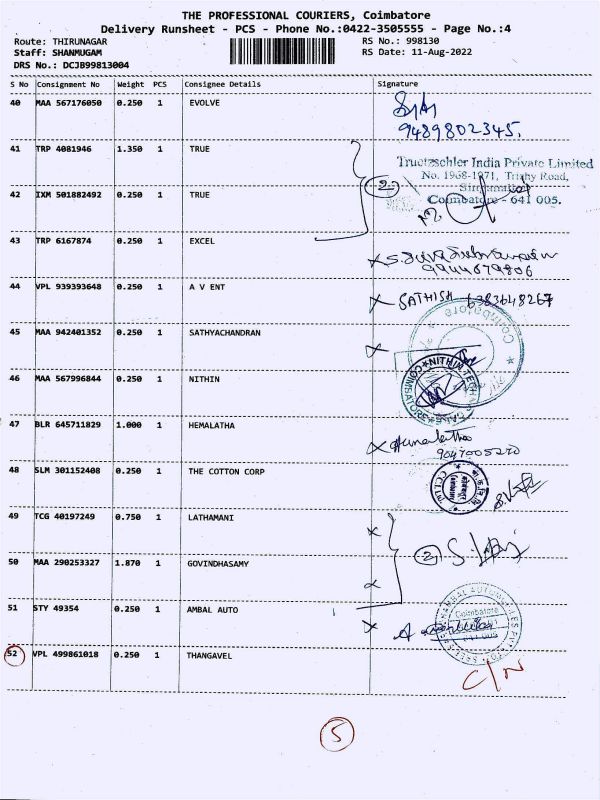 THE PROFESSIONAL COURIERS, Coimbatore
Delivery Runsheet - PCS - Phone No.:0422-3505555 - Page No.:4
Route: THIRUNAGAR
RS No.: 998130
Staff: SHANMUGAM
RS Date: 11-Aug-2022
DRS No.: DCJB99813004
S No Consignment No Weight PCS Consignee Details Signature
40 MAA 567176050 0.250 1 EVOLVE
9489802345.
41 TRP 4081946 1.350 1 TRUE
Truetzschler India Private Limited
No. 1968-1971, Trichy Road,
42 IXM 501882492 0.250 1 TRUE
2
Singanallur
Coimbatore - 641 005.
43 TRP 6167874 0.250 1 EXCEL
9944679806
44 VPL 939393648 0.250 1 A V ENT
SATHISH 6383648267
Coimbatore
45 MAA 942401352 0.250 1 SATHYACHANDRAN
46 MAA 567996844 0.250 1 NITHIN
NITHIN TECH
COIMBATORE
47 BLR 645711829 1.000 1 HEMALATHA
Hemalatha
9047005270
48 SLM 301152408 0.250 1 THE COTTON CORP
49 TCG 40197249 0.750 1 LATHAMANI
50 MAA 290253327 1.870 1 GOVINDHASAMY
2
51 STY 49354 0.250 1 AMBAL AUTO
Coimbatore
52 VPL 499861018 0.250 1 THANGAVEL
C/N
5